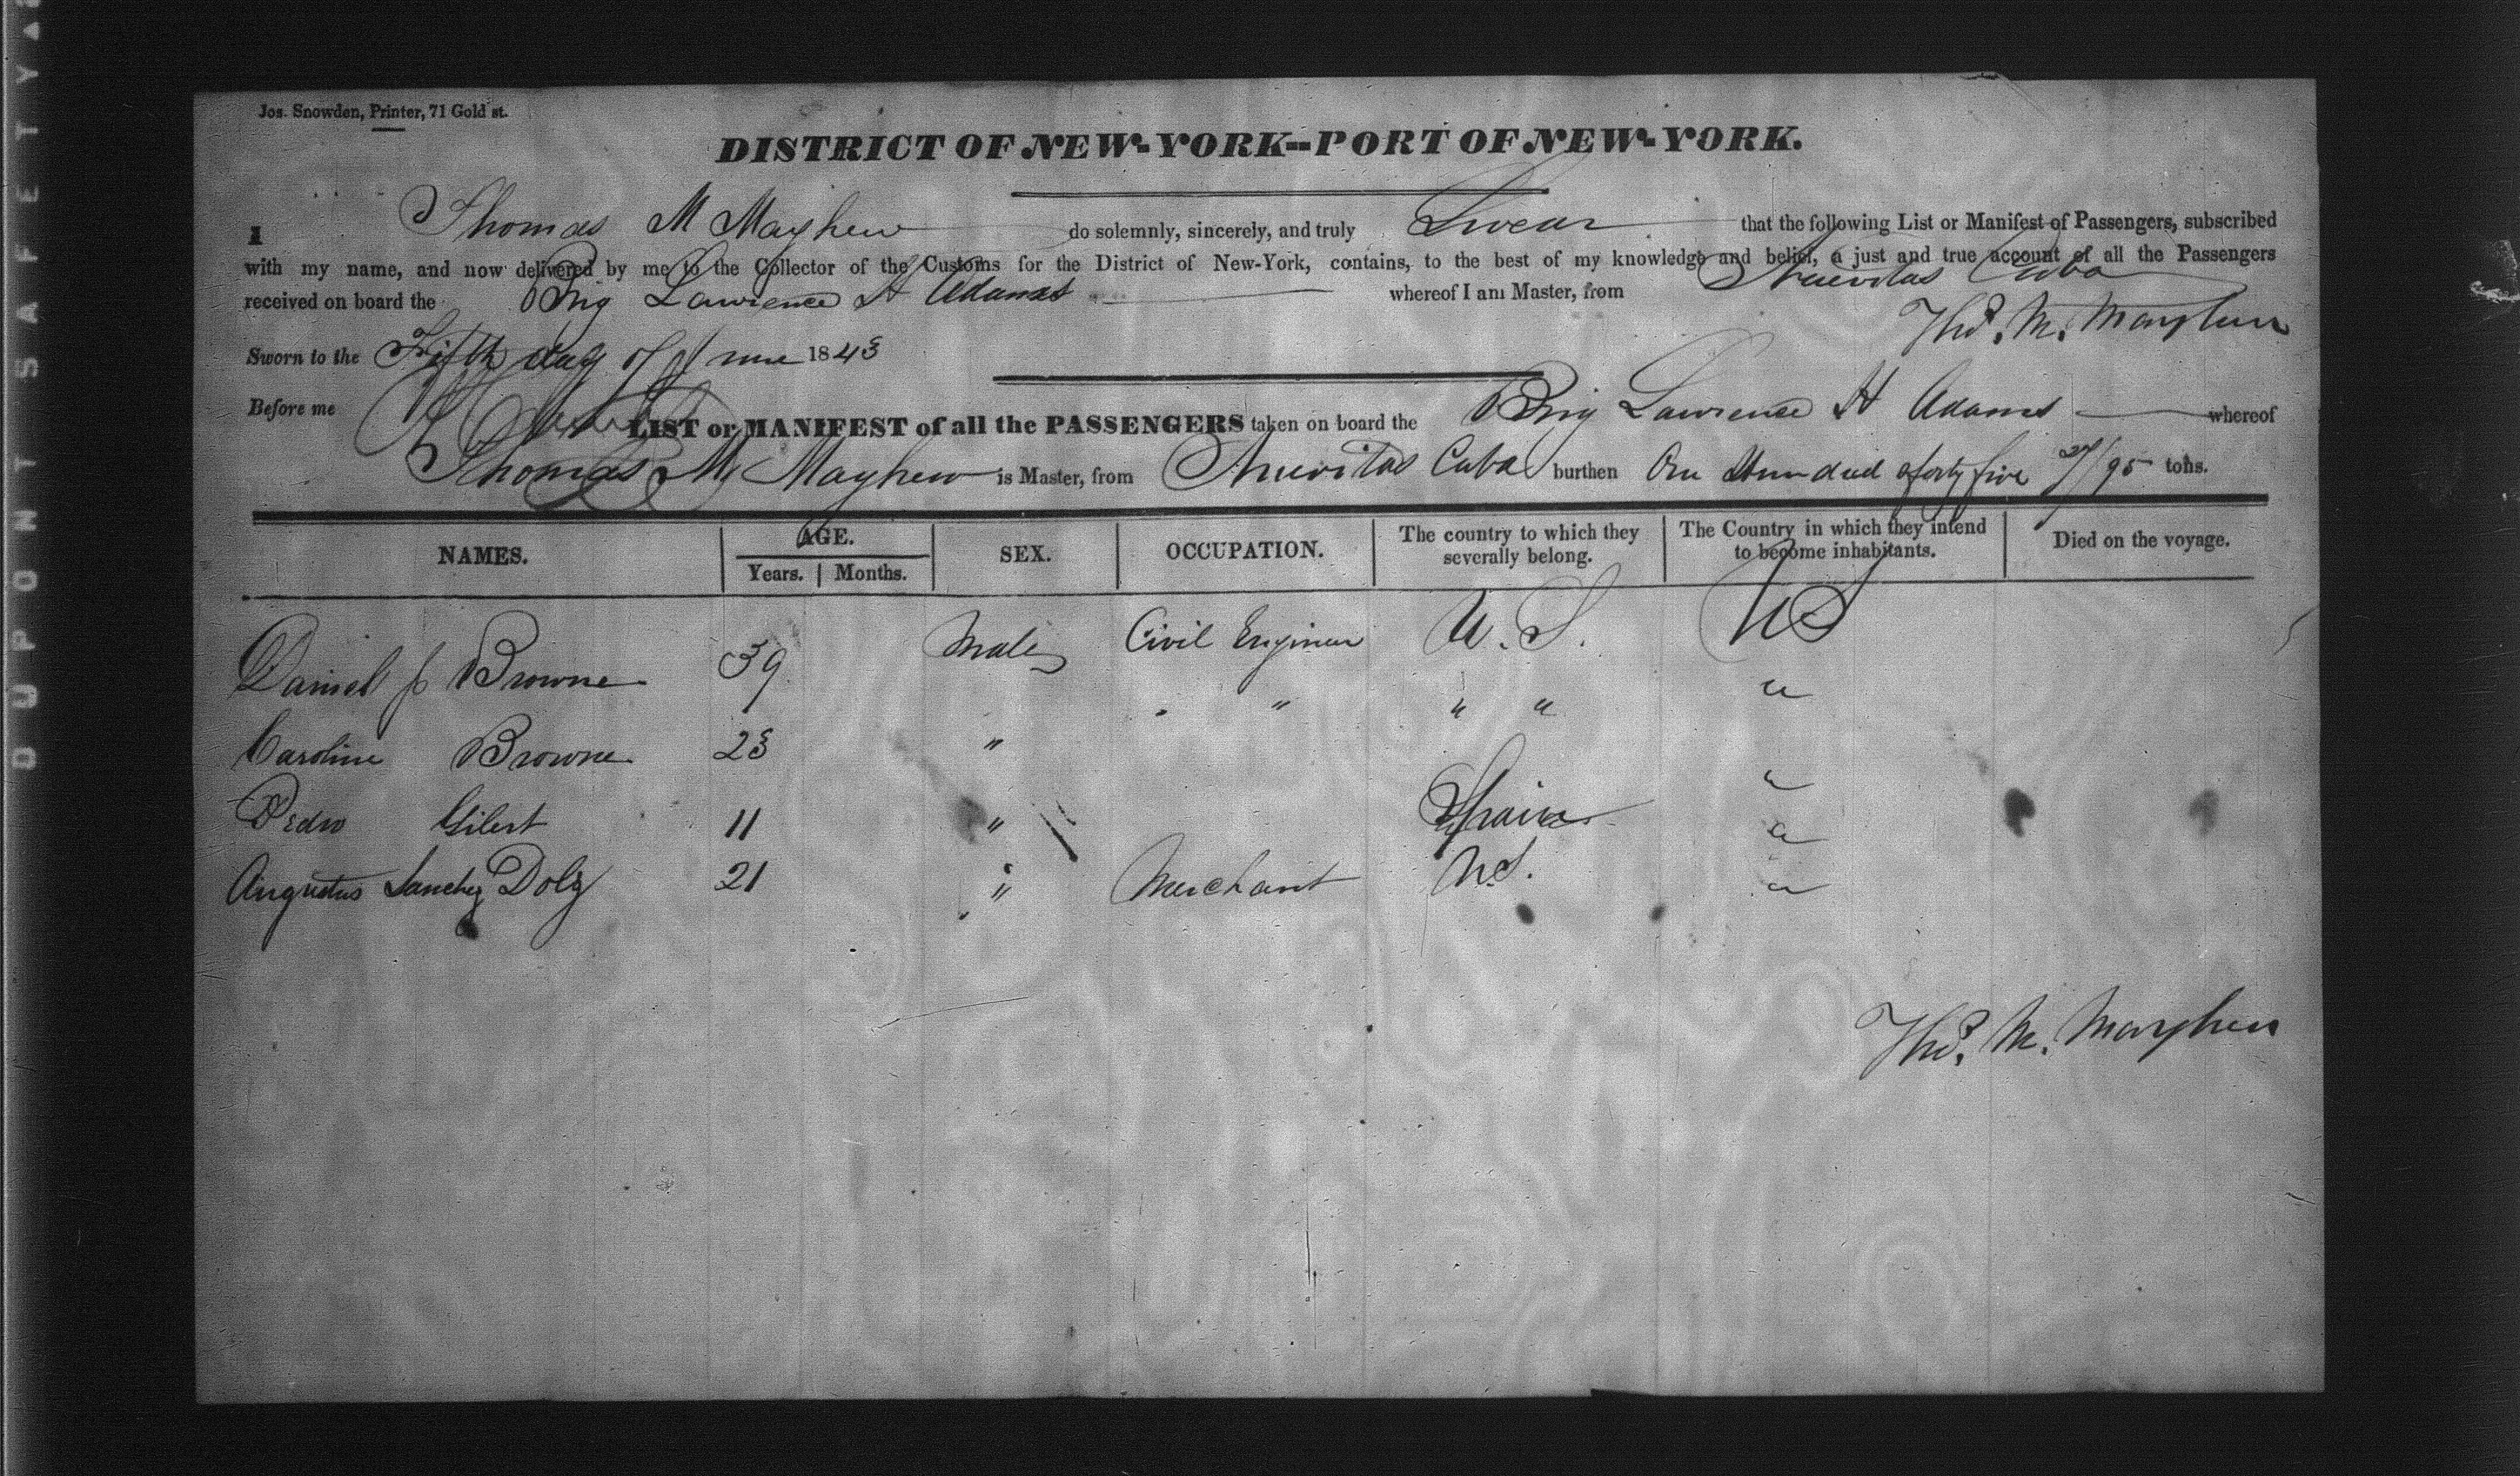 DUPONT SAFETY
Jos. Snowden, Printer, 71 Gold st.
DISTRICT OF NEW-YORK--PORT OF NEW-YORK.
I Thomas M Mayhew do solemnly, sincerely, and truly Swear that the following List or Manifest of Passengers, subscribed
with my name, and now delivered by me to the Collector of the Customs for the District of New-York, contains, to the best of my knowledge and belief, a just and true account of all the Passengers
received on board the Brig Lawrence H Adams whereof I am Master, from Nuevitas Cuba
Thos. M. Mayhew
Sworn to the Fifth day of June 1843
Before me
LIST or MANIFEST of all the PASSENGERS taken on board the Brig Lawrence H Adams whereof
Thomas M Mayhew is Master, from Nuevitas Cuba burthen One Hundred & forty five 27/95 tons.
NAMES. AGE. Years. Months. SEX. OCCUPATION. The country to which they severally belong. The Country in which they intend to become inhabitants. Died on the voyage.
Daniel J Browne 39 Male Civil Engineer U.S. US
Caroline Browne 23 " " " " "
Pedro Gibert 11 " Spain "
Augustus Sanchez Dolz 21 " Merchant U.S. "
Thos. M. Mayhew